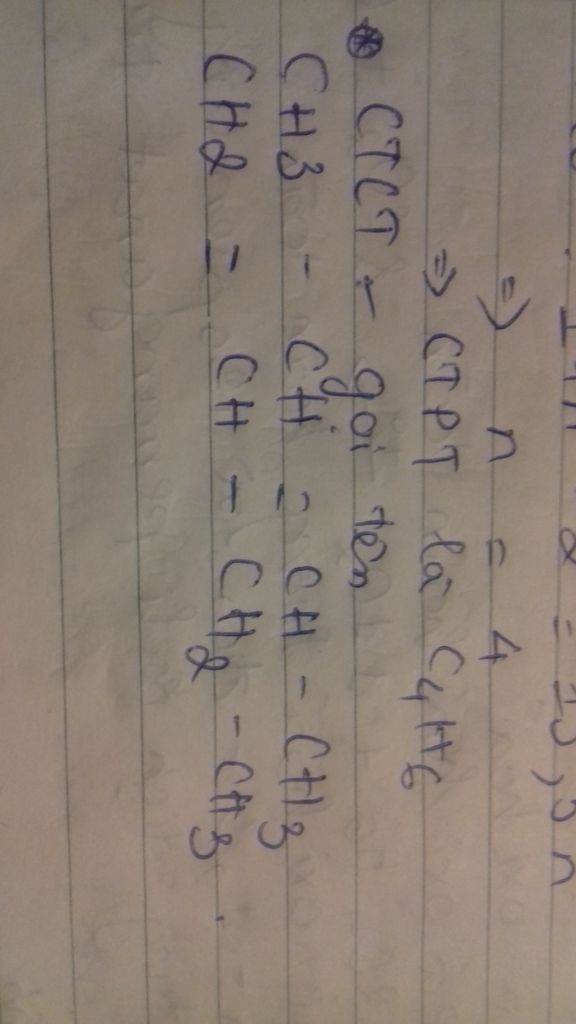 => n = 4
=> CTPT là C4H6
⊛ CTCT - gọi tên
CH3 - CH = CH - CH3
CH2 = CH - CH2 - CH3.